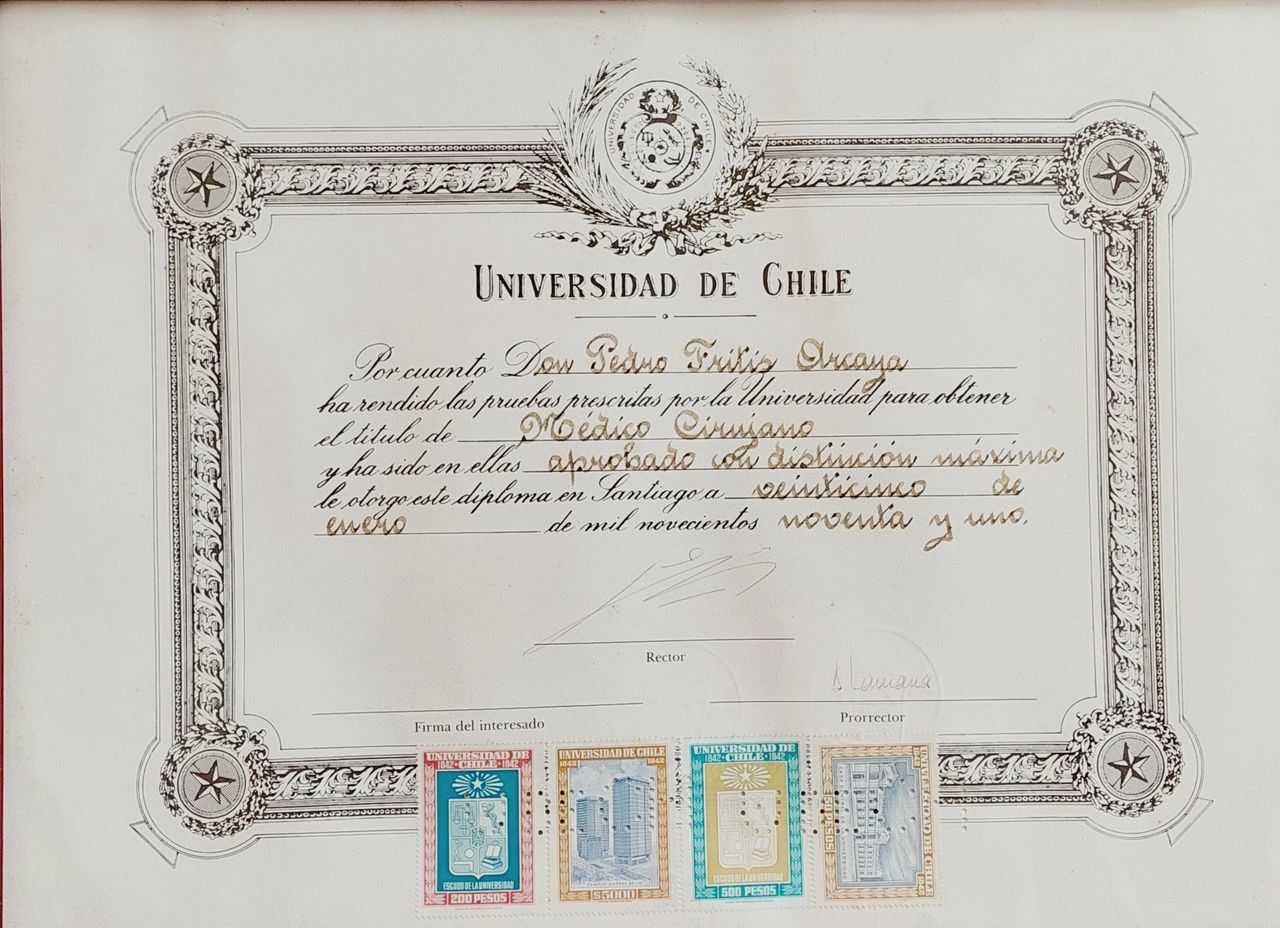 UNIVERSIDAD DE CHILE
UNIVERSIDAD DE CHILE
Por cuanto Don Pedro Fritis Arcaya
ha rendido las pruebas prescritas por la Universidad para obtener
el título de Médico Cirujano
y ha sido en ellas aprobado con distinción máxima
le otorgo este diploma en Santiago a veinticinco de
enero de mil novecientos noventa y uno.
Rector
Firma del interesado
Prorrector
UNIVERSIDAD DE
1842 · CHILE · 1842
ESCUDO DE LA UNIVERSIDAD
200 PESOS
UNIVERSIDAD DE CHILE
1842 1842
CAMPUS ANDRES BELLO
$5000
UNIVERSIDAD DE
1842 · CHILE · 1842
ESCUDO DE LA UNIVERSIDAD
500 PESOS
UNIVERSIDAD DE CHILE
1842 1842
PESOS